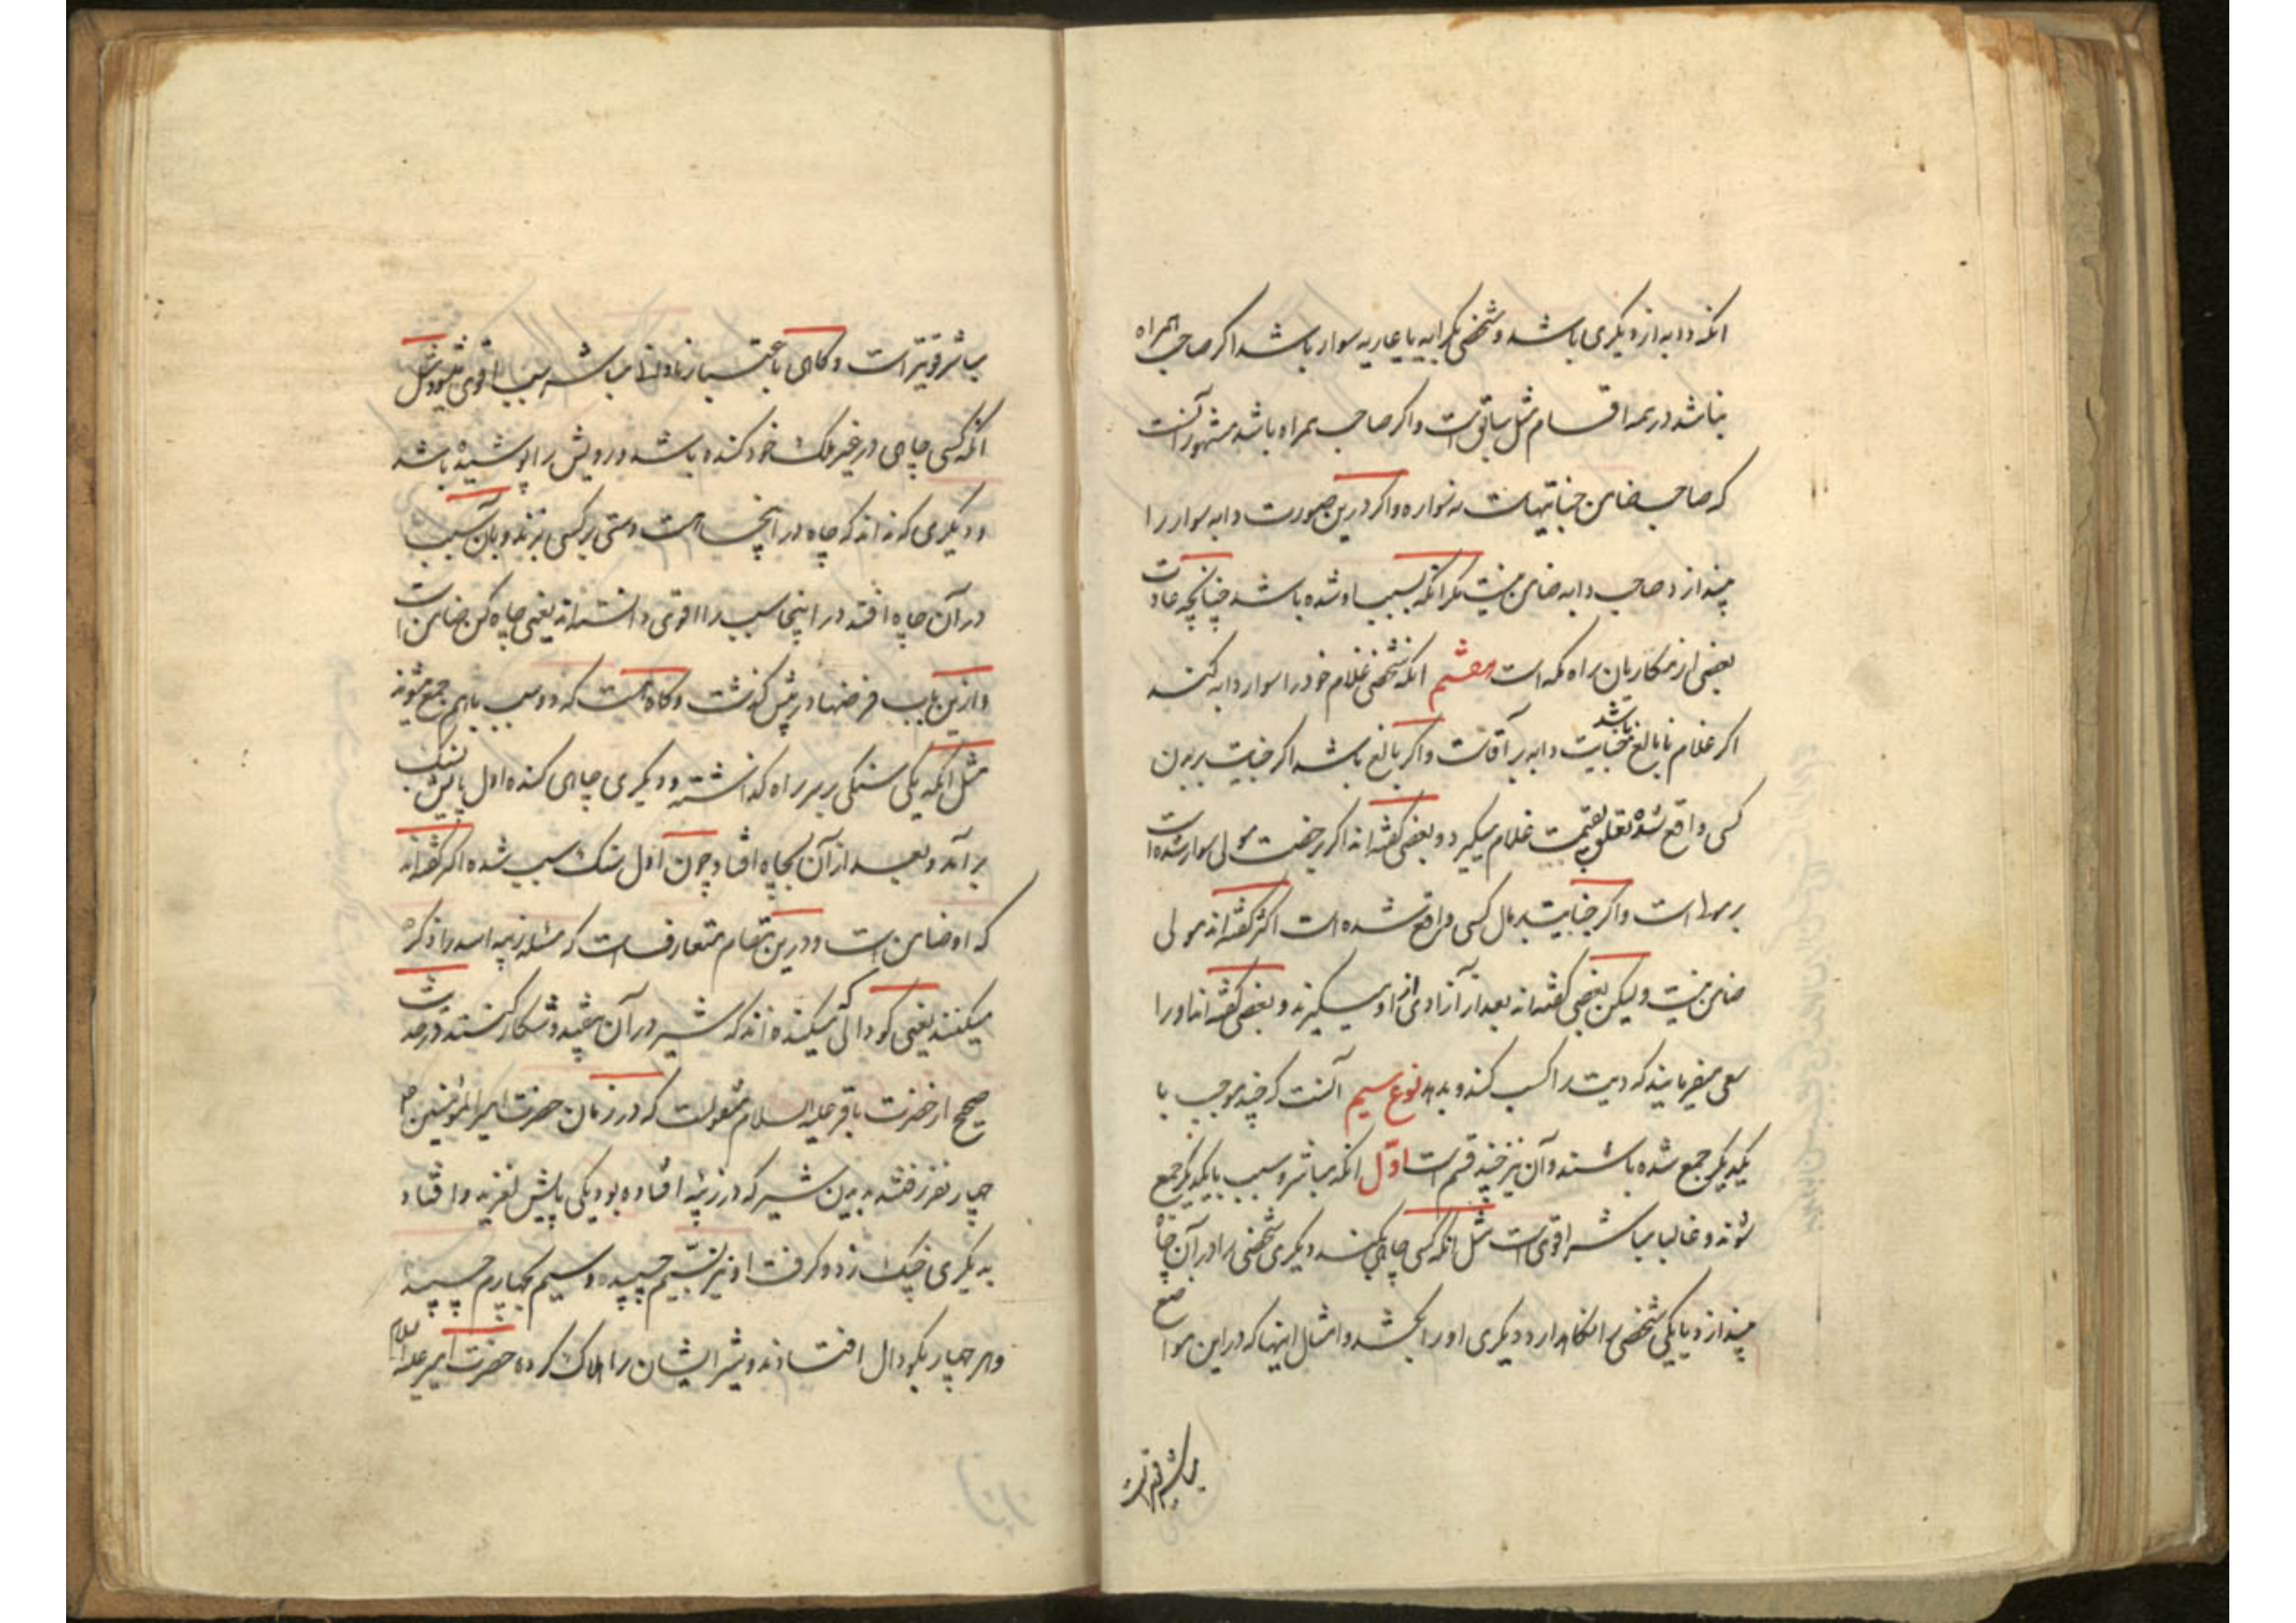 انکه دابه از دیکری باشد و شخصی بکرایه یا عاریه سوار باشد اکر صاحب همراه
نباشد در همه اقسام مثل سابق است و اکر صاحب همراه باشد مشهور آنست
که صاحب ضامن جنایتهاست نه سواره و اکر درین صورت دابه سوار را
بیندازد صاحب دابه ضامن نیست مکر انکه بسبب او شده باشد چنانچه عادت
بعضی از مکاریان راه مکه است هفتم انکه شخصی غلام خود را سوار دابه کند
اکر غلام نابالغ باشد جنایت دابه بر آقاست و اکر بالغ باشد اکر جنایت بر بدن
کسی واقع شده تعلق بقیمت غلام میکیرد و بعضی کفته‌اند اکر برخصت مولی سوار شده است
بر مولا است و اکر جنایت بر مال کسی واقع شده است اکثر کفته‌اند مولی
ضامن نیست و لیکن بعضی کفته‌اند بعد از آزادی از او میکیرند و بعضی کفته‌اند او را
سعی میفرمایند که دیت را کسب کند و بدهد نوع سیم آنست که چند موجب با
یکدیکر جمع شده باشند و آن نیز چند قسم است اوّل انکه مباشر و سبب با یکدیکر جمع
شوند و غالبا مباشر اقوی است مثل انکه کسی چاهی بکند و دیکری شخصی را در آن چاه
بیندازد و یا یکی شخصی را نکاهدارد و دیکری او را بکشد و امثال اینها که در این مواضع
مباشر قویتر است
مباشر قویتر است و کاهی باعتبار نادانی مباشر سبب اقوی میشود مثل
انکه کسی چاهی در غیر ملک خود کنده باشد و رویش را پوشیده باشد
و دیکری که نداند که چاه در آنجا است دستی بر کسی بزند و بآن سبب
در آن چاه افتد در اینجا سبب را اقوی دانسته‌اند یعنی چاه کن ضامن است
و ازین باب فرضها در پیش کذشت و کاه است که دو سبب باهم جمع میشوند
مثل انکه یکی سنکی بر سر راه کذاشته و دیکری چاهی کنده اول پایش بسنک
بر آمد و بعد از آن بچاه افتاد چون اول سنک سبب شده اکثر کفته‌اند
که او ضامن است و درین مقام متعارفست که مسئله زبیه اسد را ذکر
میکنند یعنی کودالی که میکنده‌اند که شیر در آن بیفتد و شکار کنند و در حدیث
صحیح از حضرت باقر علیه السلام منقولست که در زمان حضرت امیر المؤمنین ع
چهار نفر رفتند بدیدن شیر که در زبیه افتاده بود یکی پایش لغزید و افتاد
بدیکری چنک زد و کرفت او نیز بسیّم چسپیده و سیم بچهارم چسپید
و هر چهار بکودال افتادند و شیر ایشان را هلاک کرده حضرت امیر علیه السلام